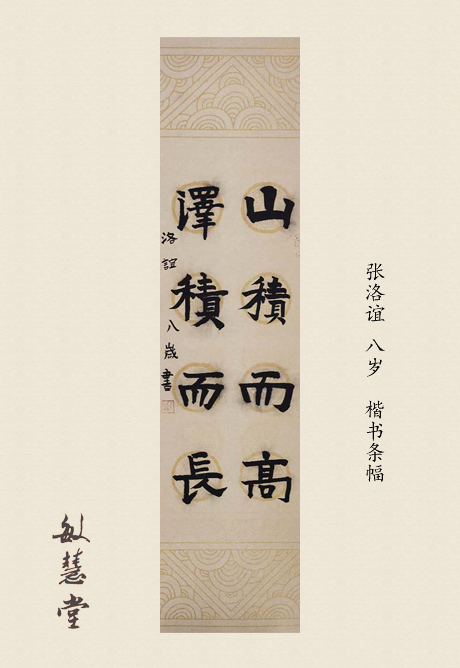 山積而高
澤積而長
洛誼八歲書
张洛谊 八岁 楷书条幅
敏慧堂